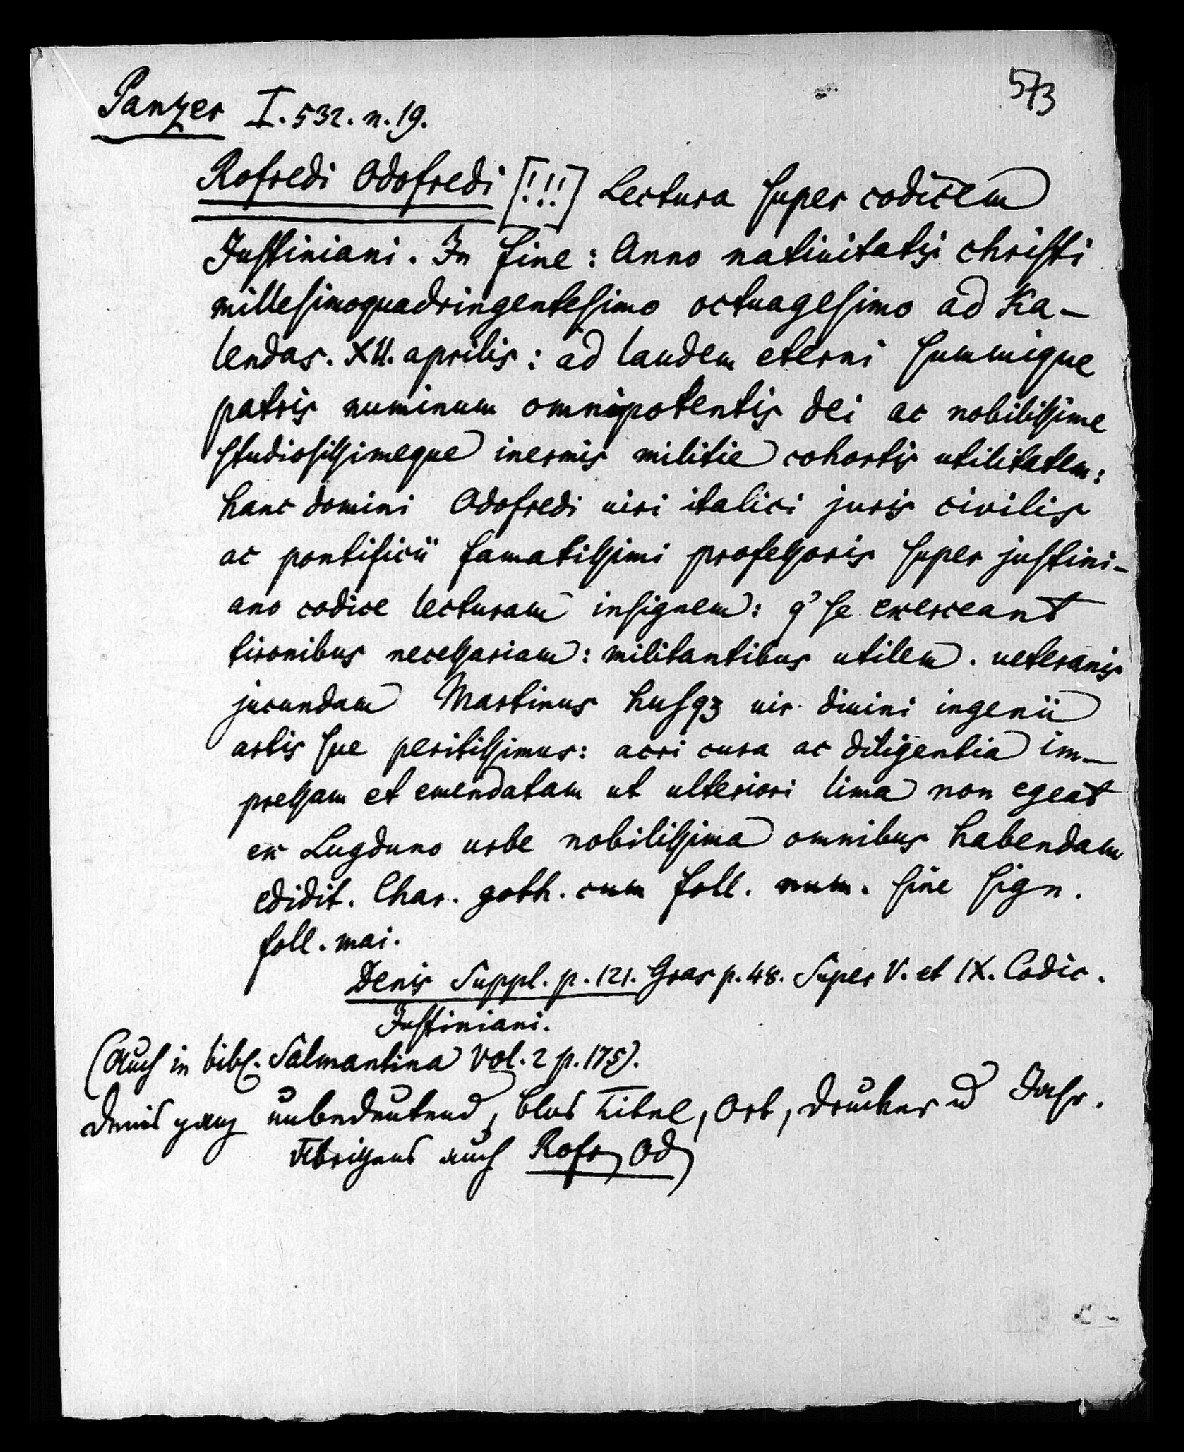 573
Panzer I. 532. n. 19.
Rofredi Odofredi [!!!] Lectura super codicem
Justiniani. In fine: Anno nativitatis christi
millesimoquadringentesimo octuagesimo ad Ka-
lendas. XII. aprilis: ad laudem eterni summique
patris numinum omnipotentis dei ac nobilissime
studiosissimeque inermis militie cohortis utilitatem:
hanc domini Odofredi viri italici juris civilis
ac pontificii famatissimi professoris super justini-
ano codice lecturam insignem: q' se exerceant
tironibus necessariam: militantibus utilem. ueteranis
jucundam Martinus husqz uir diuini ingenii
artis sue peritissimus: acri cura ac diligentia im-
pressam et emendatam ut ulteriori lima non egeat
ex Lugduno urbe nobilissima omnibus habendam
edidit. Char. goth. cum foll. num. sine sign.
foll. mai.
Denis Suppl. p. 121. Gras p. 48. Super V. et IX. Codic.
Justiniani.
(Auch in bibl. Salmantina Vol. 2 p. 175).
Denis ganz unbedeutend, blos Titel, Ort, Drucker u Jahr.
Übrigens auch Rofr Od